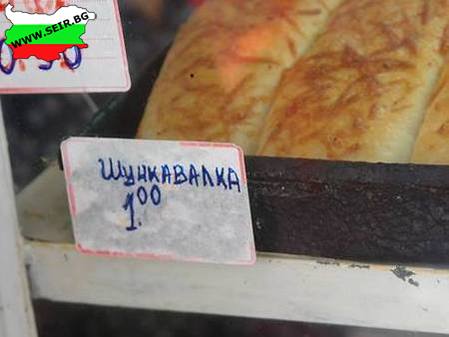 WWW.SEIR.BG
ШУНКАВАЛКА
1.00